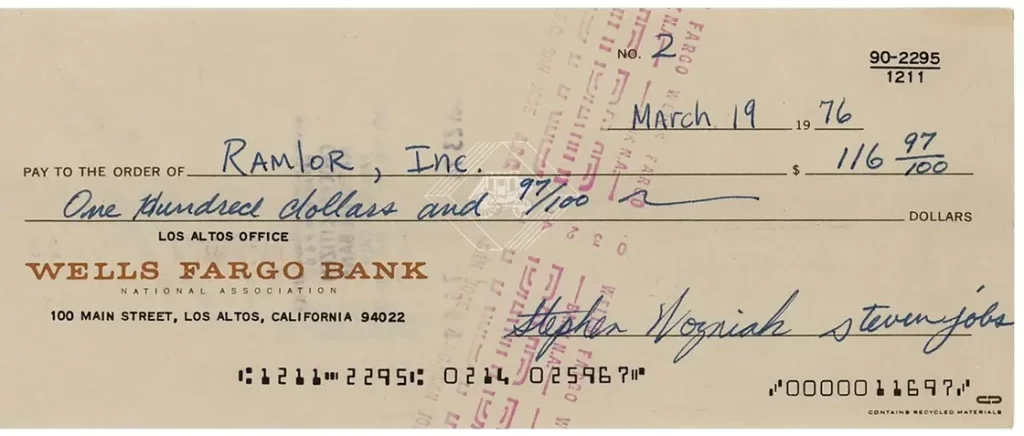 NO. 2
90-2295
1211
March 19 1976
PAY TO THE ORDER OF RAMLOR, Inc. $ 116 97/100
One Hundred dollars and 97/100 DOLLARS
LOS ALTOS OFFICE
WELLS FARGO BANK
NATIONAL ASSOCIATION
100 MAIN STREET, LOS ALTOS, CALIFORNIA 94022
Stephen Wozniak steven jobs
⑆1211⑉2295⑆ 0214 025967⑈ ⑇0000011697⑇
CONTAINS RECYCLED MATERIALS